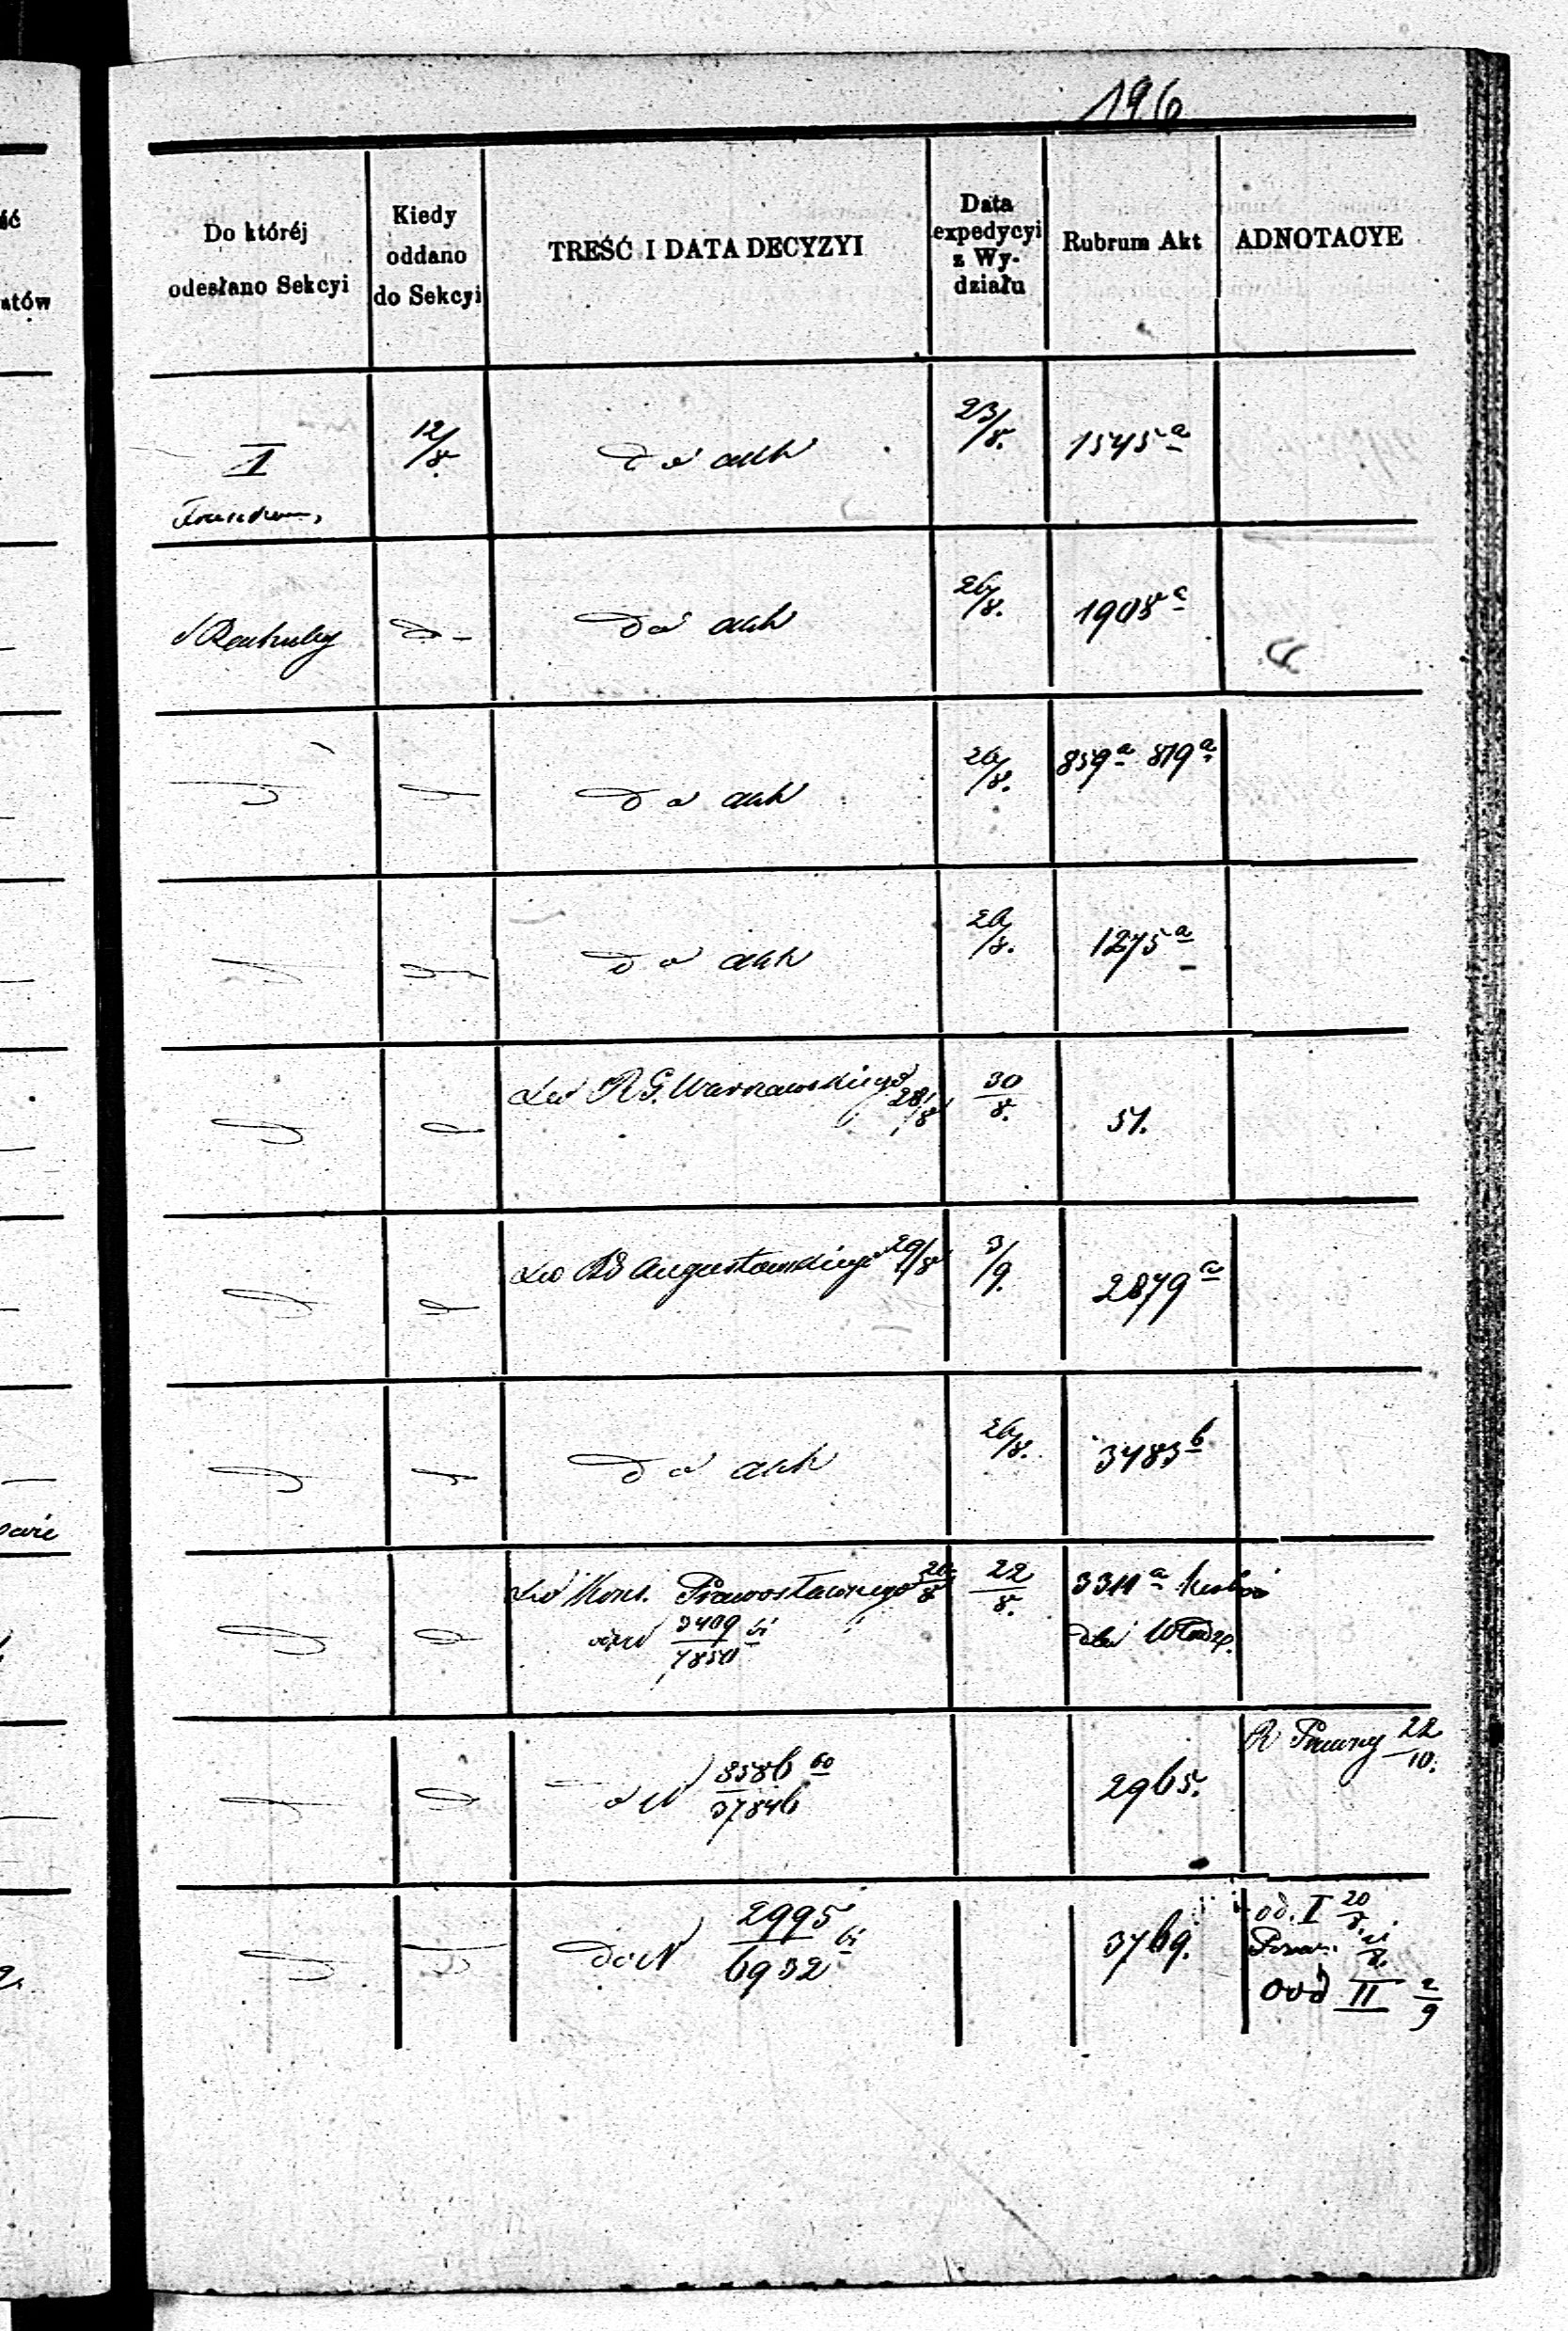 196
Do któréj
odesłano Sekcyi
Kiedy
oddano
do Sekcyi
TREŚĆ I DATA DECYZYI
Data
expedycyi
z Wy-
działu
Rubrum Akt
ADNOTACYE
I
12/8.
do akt
23/8.
1545 a
do akt
26/8.
1908 a
do akt
26/8.
859 a 879 a
do akt
26/8.
1275 a
Do RG. Warszawskiego 28/8
30/8.
51.
Do RG Augustowskiego 29/8
3/9.
2879 a
do akt
26/8.
3483 b
Do Kons. Prawosławnego 20/8
22/8.
3311 a
3409/7850
N 8586/37846
2965.
R Prawny 22/10.
do N 2995/6932
3769.
od. I 20/8.
II 2/9